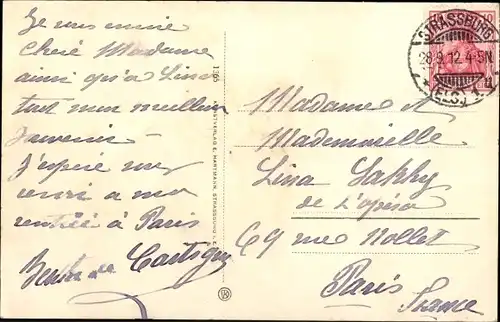 Je vous envoie
Chère Madame
ainsi qu'à Lina
tout mon meilleur
souvenir
J'espère vous
à ma
rentrée à Paris
STRASSBURG
28.9.12.4-5N.
(ELS.)
1365
E. HARTMANN, STRASSBURG I. E.
Madame &
Mademoiselle
Lina
de l'Opéra
69 rue Nollet
Paris
France